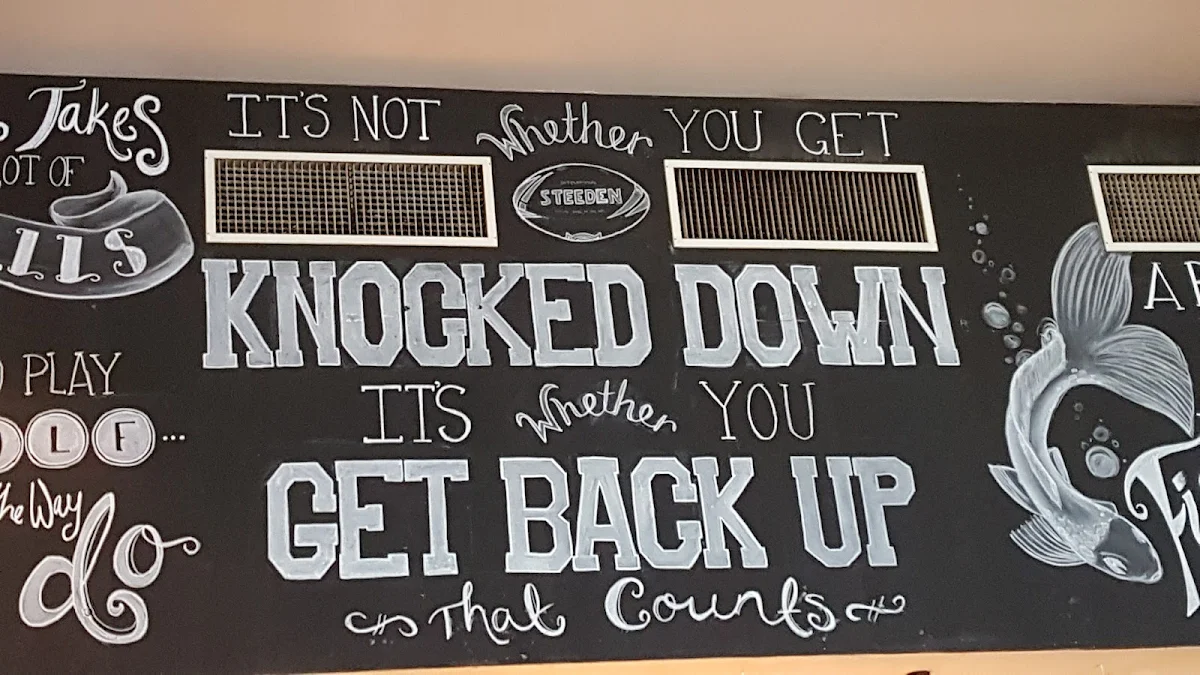 Takes
LOT OF
LLS
PLAY
LF...
the Way
do
IT'S NOT Whether YOU GET
STEEDEN
KNOCKED DOWN
IT'S Whether YOU
GET BACK UP
That Counts
A
Fi